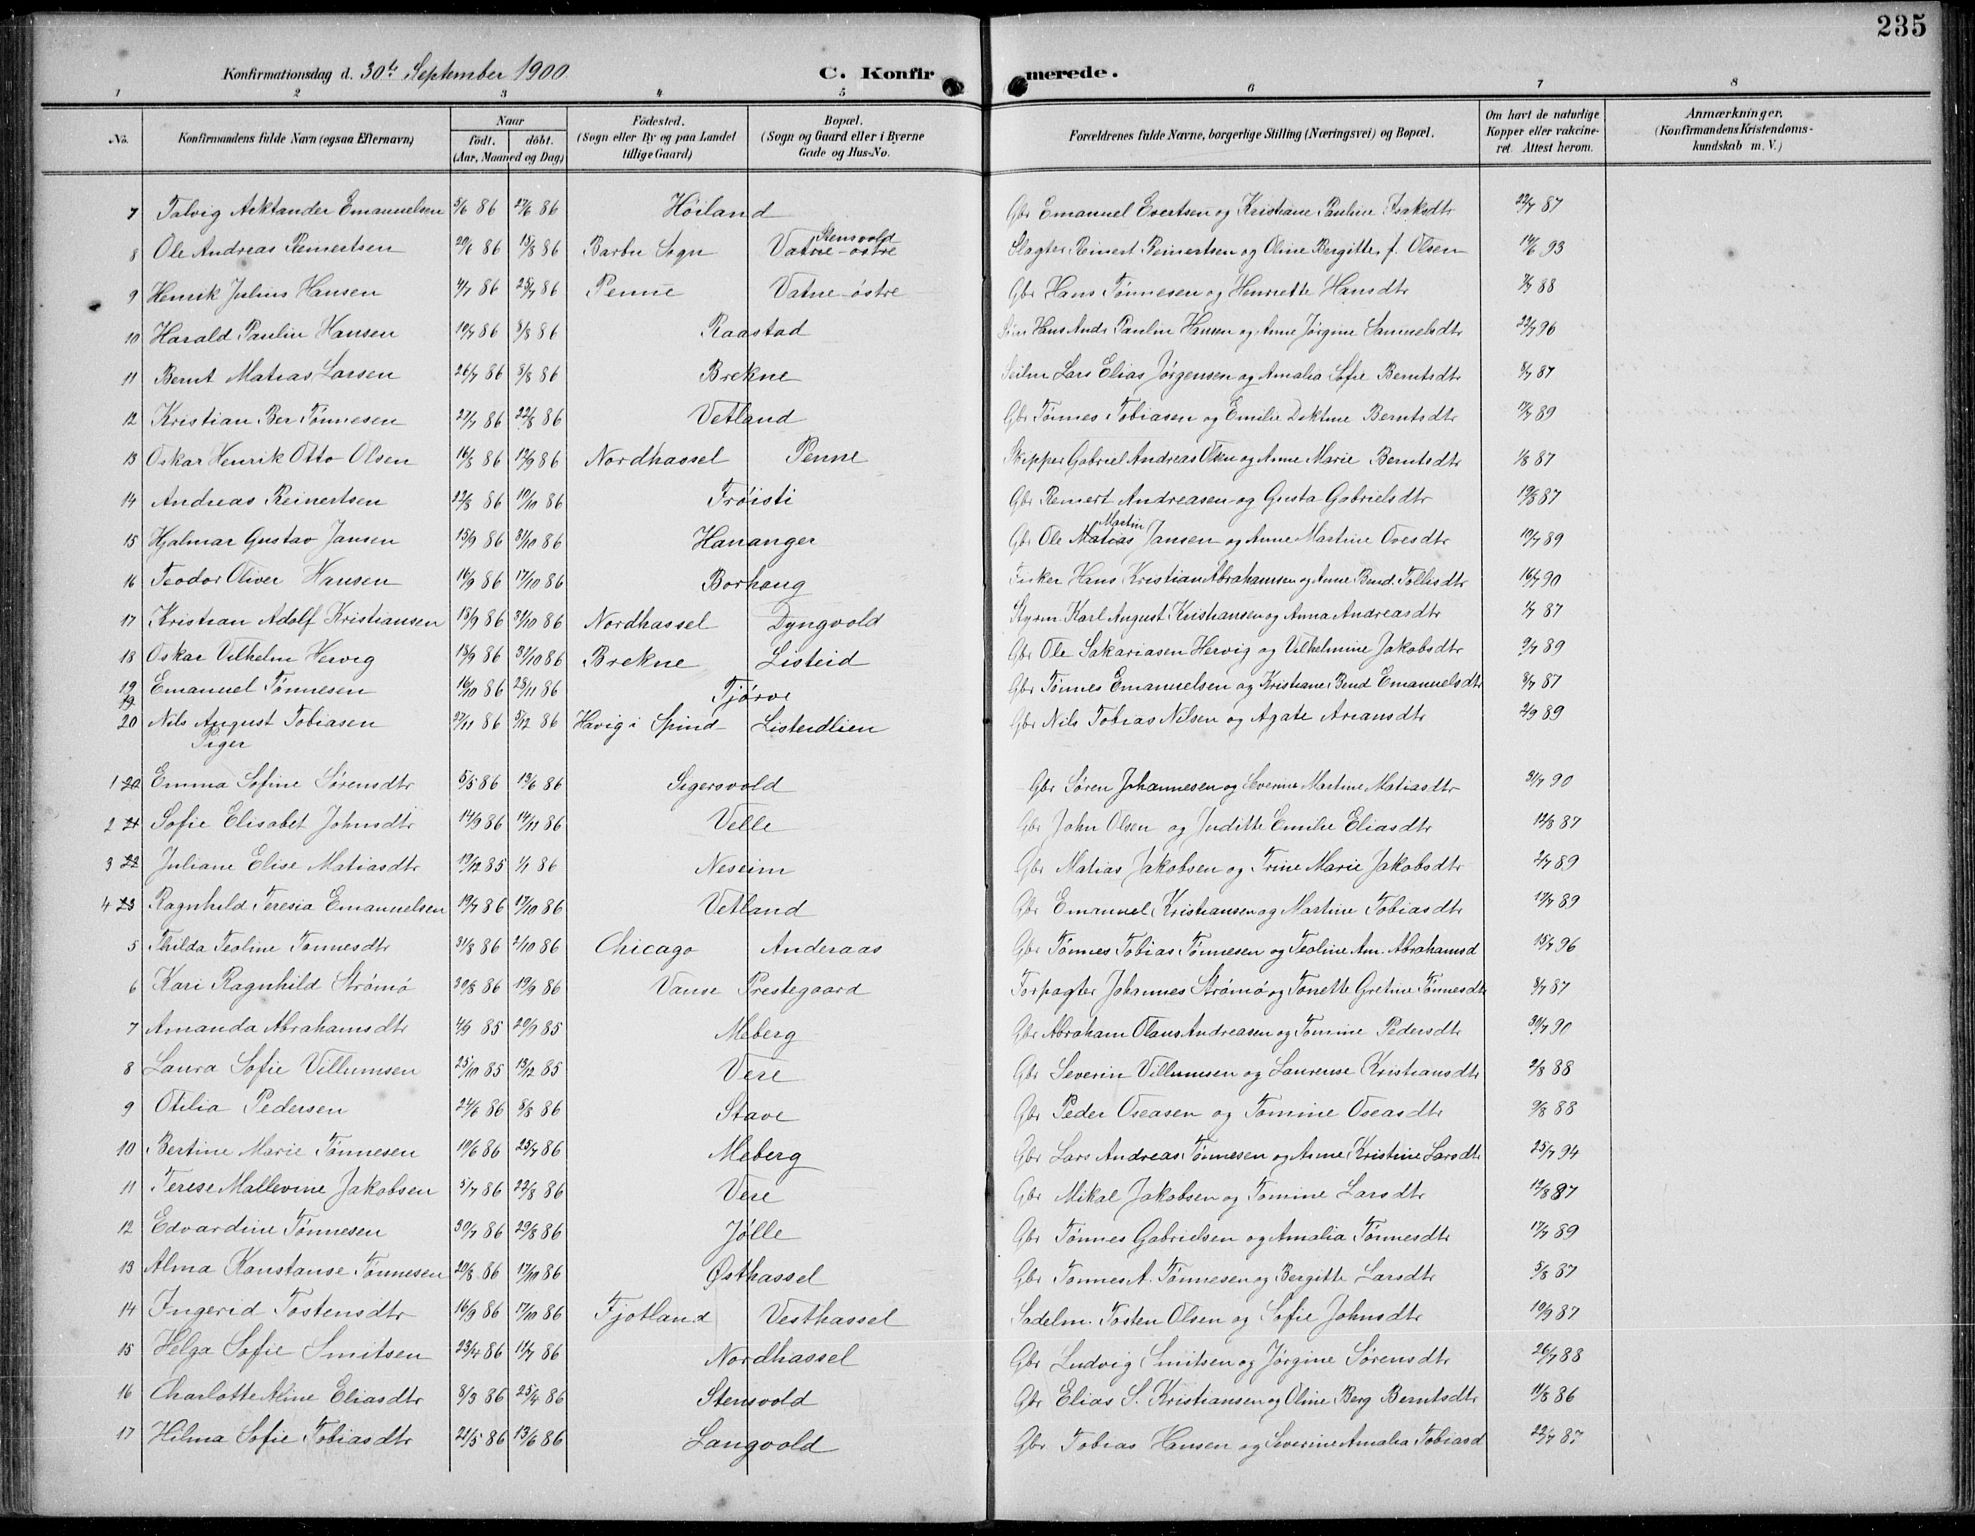 235
Konfirmationsdag d. 30te September 1900 C. Konfirmerede.
1 2 3 4 5 6 7 8
No. Konfirmandens fulde Navn (ogsaa Efternavn) Naar født. døbt. (Aar, Maaned og Dag) Fødested. (Sogn eller By og paa Landet tillige Gaard) Bopæl. (Sogn og Gaard eller i Byerne Gade og Hus-No. Forældrenes fulde Navne, borgerlige Stilling (Næringsvei) og Bopæl. Om havt de naturlige Kopper eller vakcineret. Attest herom. Anmærkninger. (Konfirmandens Kristendomskundskab m. V.)
7 Talvig Arktander Emanuelsen 5/6 86 27/6 86 Høiland Gbr Emanuel Evertsen og Kristiane Pauline Isaksdtr 22/7 87
8 Ole Andreas Reinertsen 29/6 86 15/8 86 Barbu Sogn Vatne-østre Stensvold Slagter Reinert Reinertsen og Oline Bergitte f. Olsen 14/6 93
9 Henrik Julius Hansen 4/7 86 25/7 86 Penne Vatne-østre Gbr Hans Tønnesen og Henriette Hansdtr 88
10 Harald Paulin Hansen 19/7 86 8/8 86 Raastad Hans Andr Paulin Hansen og Anne Jørgine Samuelsdtr 22/7 96
11 Bernt Matias Larsen 26/7 86 8/8 86 Brekne Seilm Lars Elias Jørgensen og Amalia Sofie Berntsdtr 8/7 87
12 Kristian Ber Tønnesen 27/7 86 22/8 86 Vetland Gbr Tønnes Tobiasen og Emilie Dektine Berntsdtr 17/7 89
13 Oskar Henrik Otto Olsen 16/8 86 19/9 86 Nordhassel Penne Skipper Gabriel Andreas Olsen og Anne Marie Berntsdtr 1/8 87
14 Andreas Reinertsen 22/8 86 10/10 86 Trøisti Gbr Reinert Andreasen og Gusta Gabrielsdtr 19/8 87
15 Hjalmar Gustav Jansen 15/9 86 31/10 86 Hananger Gbr Ole Matias Martin Jansen og Anne Martine Ovesdtr 19/7 89
16 Teodor Oliver Hansen 16/9 86 17/10 86 Borhaug Fisker Hans Kristian Abrahamsen og Anne Bend. Tollisdtr 16/7 90
17 Kristian Adolf Kristiansen 18/9 86 31/10 86 Nordhassel Dyngvold Styrm Karl August Kristiansen og Anna Andreasdtr 87
18 Oskar Vilhelm Hervig 18/9 86 31/10 86 Brekne Listeid Gbr Ole Sakariasen Hervig og Vilhelmine Jakobsdtr 9/7 89
19 Emanuel Tønnesen 16/10 86 28/11 86 Tjørve Gbr Tønnes Emanuelsen og Kristiane Bend Emanuelsdtr 8/7 87
20 Nils August Tobiasen 27/11 86 5/12 86 Havig i Spind Listeidlien Gbr Nils Tobias Nilsen og Agate Ariansdtr 2/9 89
Piger
1 20 Emma Sofine Sørensdtr 5/5 86 19/6 86 Sigersvold Gbr Søren Johannesen og Severine Martine Matiasdtr 31/7 90
2 21 Sofie Elisabet Johnsdtr 14/9 86 14/11 86 Velle Gbr John Olsen og Juditte Emilie Eliasdtr 12/8 87
3 22 Juliane Elise Matiasdtr 19/12 85 1/1 86 Neseim Gbr Matias Jakobsen og Trine Marie Jakobsdtr 2/7 89
4 23 Ragnhild Teresia Emanuelsen 19/7 86 17/10 86 Vetland Gbr Emanuel Kristiansen og Martine Tobiasdtr 17/7 89
5 Thilda Teoline Tønnesdtr 31/8 86 2/10 86 Chicago Anderaas Gbr Tønnes Tobias Tønnesen og Teoline Am. Abrahamsd 15/7 96
6 Kari Ragnhild Strømø 30/8 86 19/9 86 Vanse Prestegaard Forpagter Johannes Strømø og Tonette Gretine Tønnesdtr 8/7 87
7 Amanda Abrahamsdtr 4/9 85 20/9 85 Meberg Gbr Abraham Olaus Andreasen og Tomine Pedersdtr 30/7 90
8 Laura Sofie Villumsen 25/10 85 13/12 85 Vere Gbr Severin Villumsen og Laurense Kristiansdtr 2/8 88
9 Otilia Pedersen 24/6 86 8/8 86 Stave Gbr Peder Oseasen og Tomine Oseasdtr 9/8 88
10 Bertine Marie Tønnesen 19/6 86 25/7 86 Meberg Gbr Lars Andreas Tønnesen og Anne Kristine Larsdtr 25/7 94
11 Terese Mallevine Jakobsen 5/7 86 22/8 86 Vere Gbr Mikal Jakobsen og Tomine Larsdtr 12/8 87
12 Edvardine Tønnesen 30/7 86 29/8 86 Jølle Gbr Tønnes Gabrielsen og Amalia Tønnesdtr 17/7 89
13 Alma Konstanse Tønnesen 20/8 86 17/10 86 Østhassel Gbr Tønnes A. Tønnesen og Bergitte Larsdtr 5/8 87
14 Ingerid Tostensdtr 16/9 86 17/10 86 Fjotland Vesthassel Sadelm. Tosten Olsen og Sofie Johnsdtr 10/9 87
15 Helga Sofie Smitsen 23/4 86 11/7 86 Nordhassel Gbr Ludvig Smitsen og Jørgine Sørensdtr 26/7 88
16 Charlotte Aline Eliasdtr 8/3 86 25/4 86 Stensvold Gbr Elias S. Kristiansen og Oline Berg Berntsdtr 11/8 86
17 Hilma Sofie Tobiasdtr 21/5 86 13/6 86 Langvold Gbr Tobias Hansen og Severine Amalia Tobiasd 22/7 87